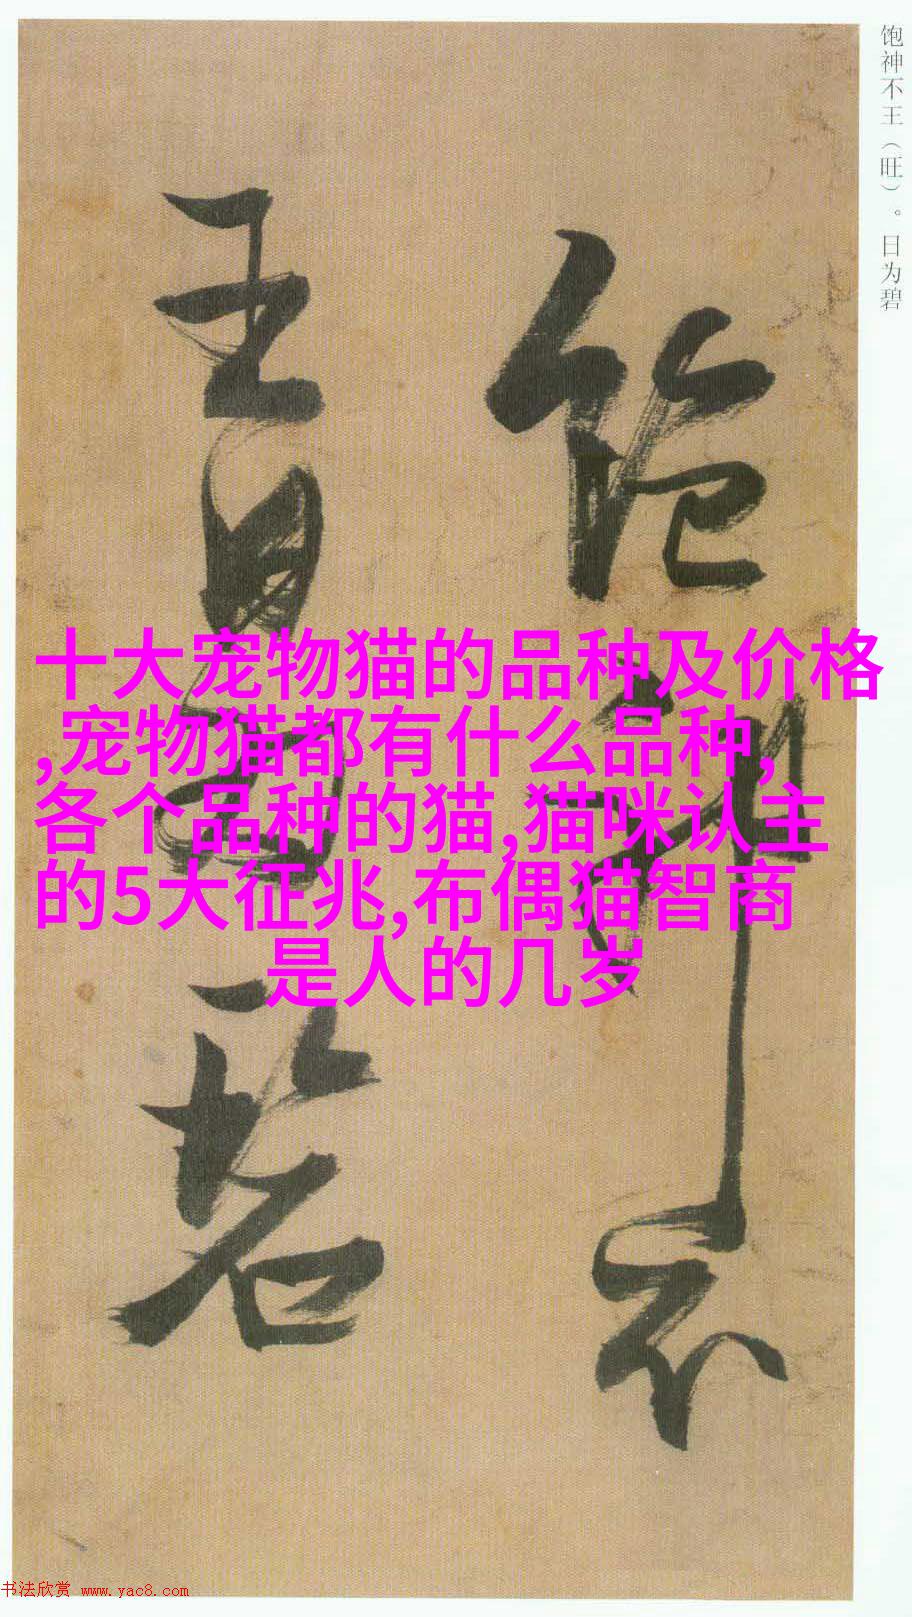 饱神不王（旺）。日为碧
饱神不
王日为碧
十大宠物猫的品种及价格
,宠物猫都有什么品种,
各个品种的猫,猫咪认主
的5大征兆,布偶猫智商
是人的几岁
书法欣赏 www.yac8.com